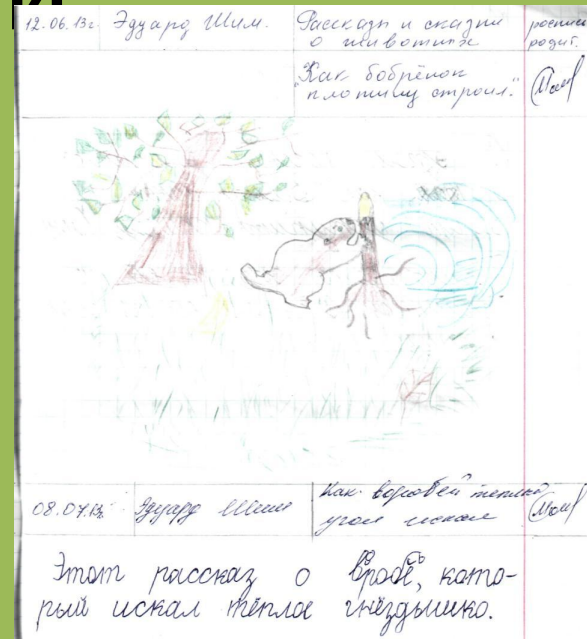 12.06.13г. Эдуард Шим. Рассказы и сказки о животных роспись родит.
"Как бобрёнок плотину строил."
08.07.13г. Эдуард Шим Как воробей тёплый угол искал
Этот рассказ о вробё, кото-
рый искал тёплое гнёздышко.